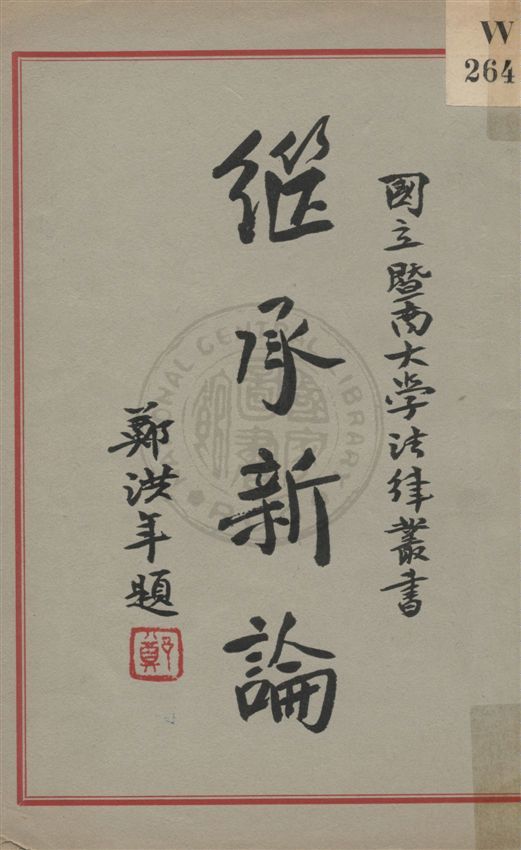 W
264
國立暨南大学法律叢書
繼承新論
鄭洪年題
鄭
NATIONAL CENTRAL LIBRARY